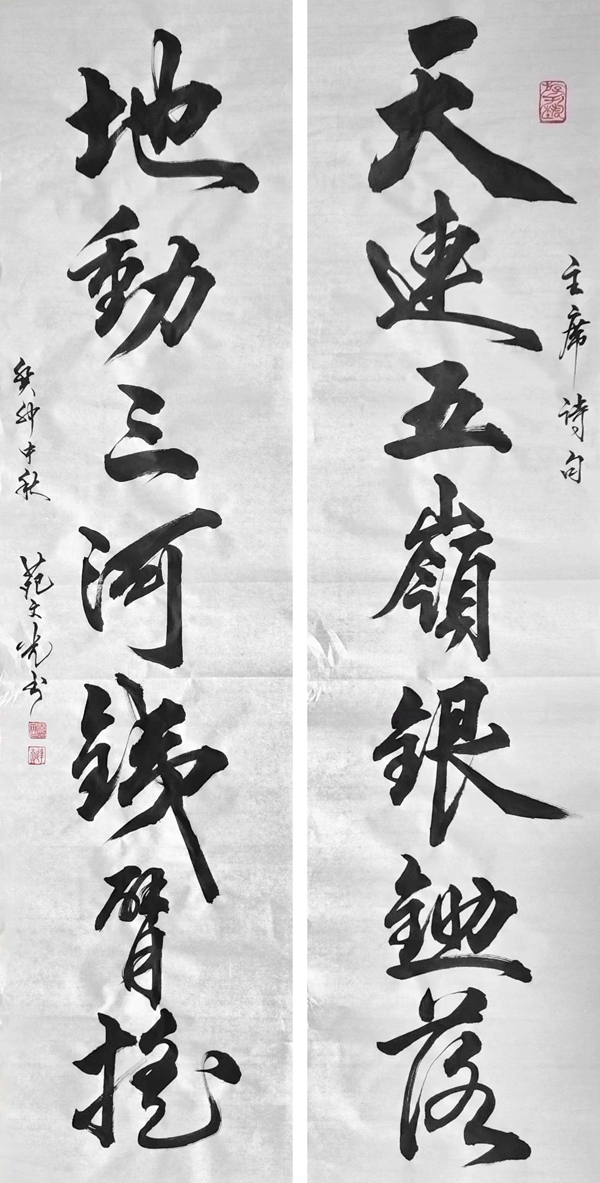 天連五嶺銀鋤落
主席詩句
地動三河鐵臂搖
癸卯中秋 范文光書